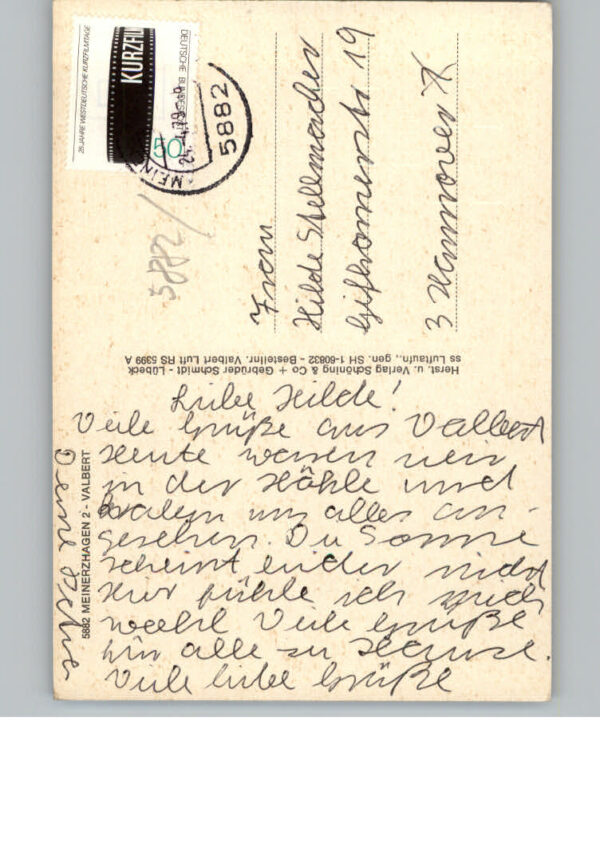 Liebe Hilde!
Viele Grüße aus Valbert
Heute waren wir
in der Höhle und
haben uns alles an-
gesehen. Die Sonne
scheint leider nicht
Hier fühle ich mich
wohl Viele Grüße
an alle zu Hause.
Viele liebe Grüße
Deine
5882 MEINERZHAGEN 2 - VALBERT
Herst. u. Verlag Schöning & Co + Gebrüder Schmidt - Lübeck
ss Luftaufn., gen. SH 1-60832 - Bestellnr. Valbert Luft RS 5399 A
Frau
Hilde Stellmacher
Gifhornerstr 19
3 Hannover
5882/
25 JAHRE WESTDEUTSCHE KURZFILMTAGE
KURZFIL
DEUTSCHE BUNDES
50
MEIN
5882